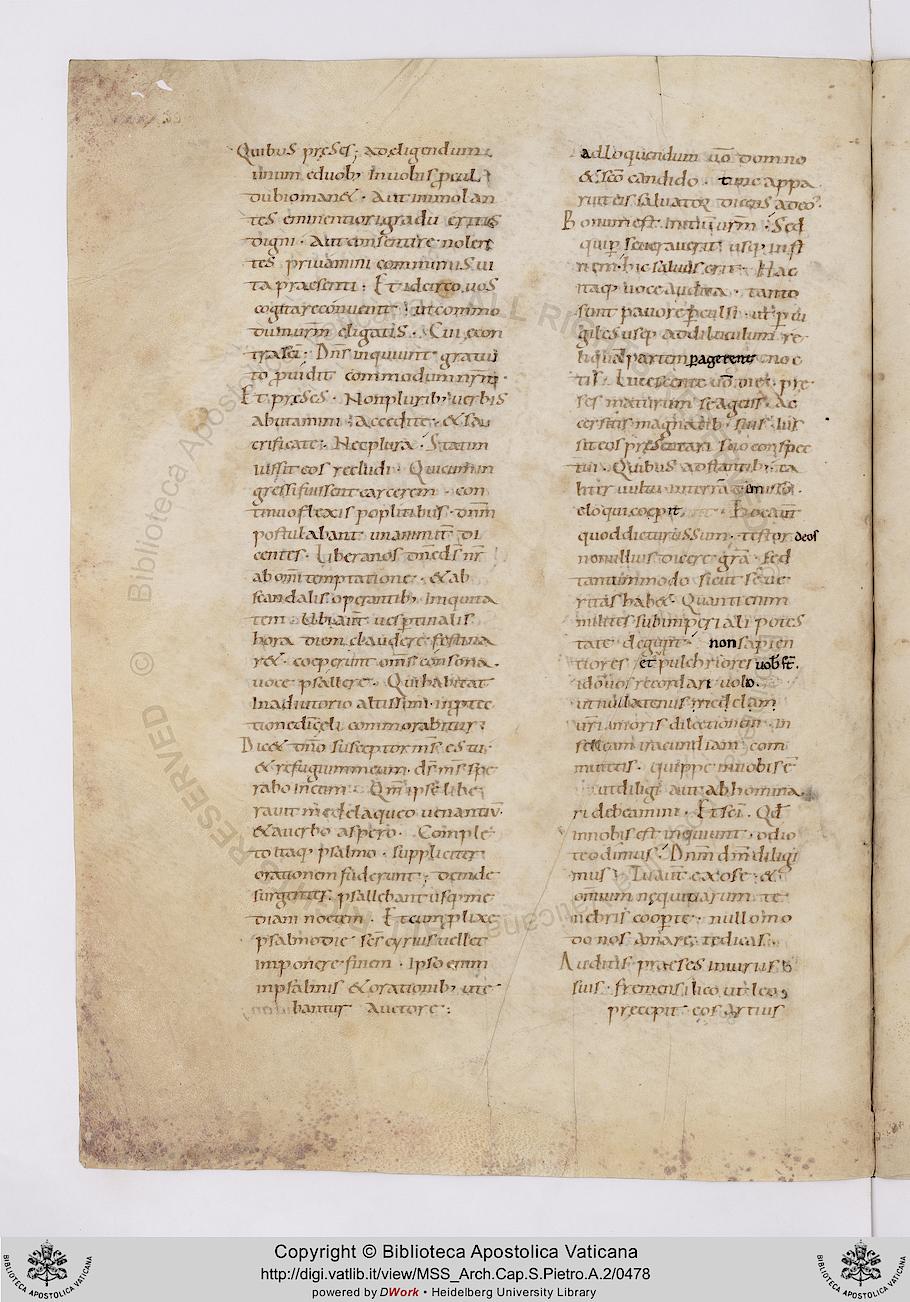 Quibus preses; ad eligendum
unum eduob; Inuobis pcul
dubio man&. Aut immolan
tes eminentiori gradu eritis
digni. Aut consentire nolen
tes priuamini communis ui
ta praesenti. Et idcirco uos
cogitare conuenit. ut commo
dum urm eligatis. Cui econ
tra sci; Dns inquiunt gratui
to puidit commodum nrm.
Et preses. Non plurib; uerbis
abutamini accedite. & sa
crificate. Nec plura. Statim
iussit eos recludi. Qui cum in
gressi fuissent carcerem. con
tinuo flexis poplitibus. dnm
postulabant unanimit di
centes. Libera nos dne ds nr
ab omi temptatione. & ab
scandalis operantib; iniquita
tem. Ubi aut uespertinalis
hora diem claudere festina
r&. coeperunt oms consona
uoce psallere. Qui habitat
In adiutorio altissimi. in ptec
tione di celi commorabitur.
Dic& dno susceptor ms es tu.
& refugium meum. ds ms spe
rabo in eum. Qm ipse libe
rauit me de laqueo uenantiu.
& a uerbo aspero. Comple
to itaq; psalmo. suppliciter
orationem fuderunt; deinde
surgentes. psallebant usq; me
diam noctem. Et cum plixe
psalmodie ses cyrius uellet
imponere finem. Ipso enim
in psalmis & orationib; ute
bantur auctore;
Ad loquendum uo domno
& sco candido. tunc appa
ruit eis saluator dicens ad eos.
Bonum est initiu urm. Sed
qui p seuerauerit usq; in fi
nem. hic saluus erit. Hac
itaq; uoce audita. tanto
sunt pauore pculsi. ut p ui
giles usq; ad diluculum re
liqua partem pagerent noc
tis. Lucescente uo die. pre
ses maturum se agens. ac
cersitis magnatib; suis. ius
sit eos presentari suo conspec
tui. Quibus adstantib; ta
lit uultu in terra dimisso.
eloqui coepit.
quod dicturus sum. testor deos
non ullius dicere gra. sed
tantummodo sicut se ue
ritas hab&. Quanti enim
milites sub imperiali potes
tate degunt. non sapien
tiores et pulchriores uob st.
id uos recordari uolo.
ut nullatenus medelam
uri amoris dilectionem. in
felleam iracundiam com
mutetis. quippe in uobis e
ut diligi aut ab homina
ri debeamini. Et sci. Qd
in nobis est inquiunt. odio
te odimus. Dnm dm diligi
mus. Tu aut exose; &
omnium nequitiarum te
nebris coopte. nullo mo
do nos amare te dicas.
Auditis praeses iniuriis
suis. fremens ilico ut leo,
precepit eos artius
Copyright © Biblioteca Apostolica Vaticana
http://digi.vatlib.it/view/MSS_Arch.Cap.S.Pietro.A.2/0478
powered by DWork • Heidelberg University Library
BIBLIOTECA APOSTOLICA VATICANA
BIBLIOTECA APOSTOLICA VATICANA